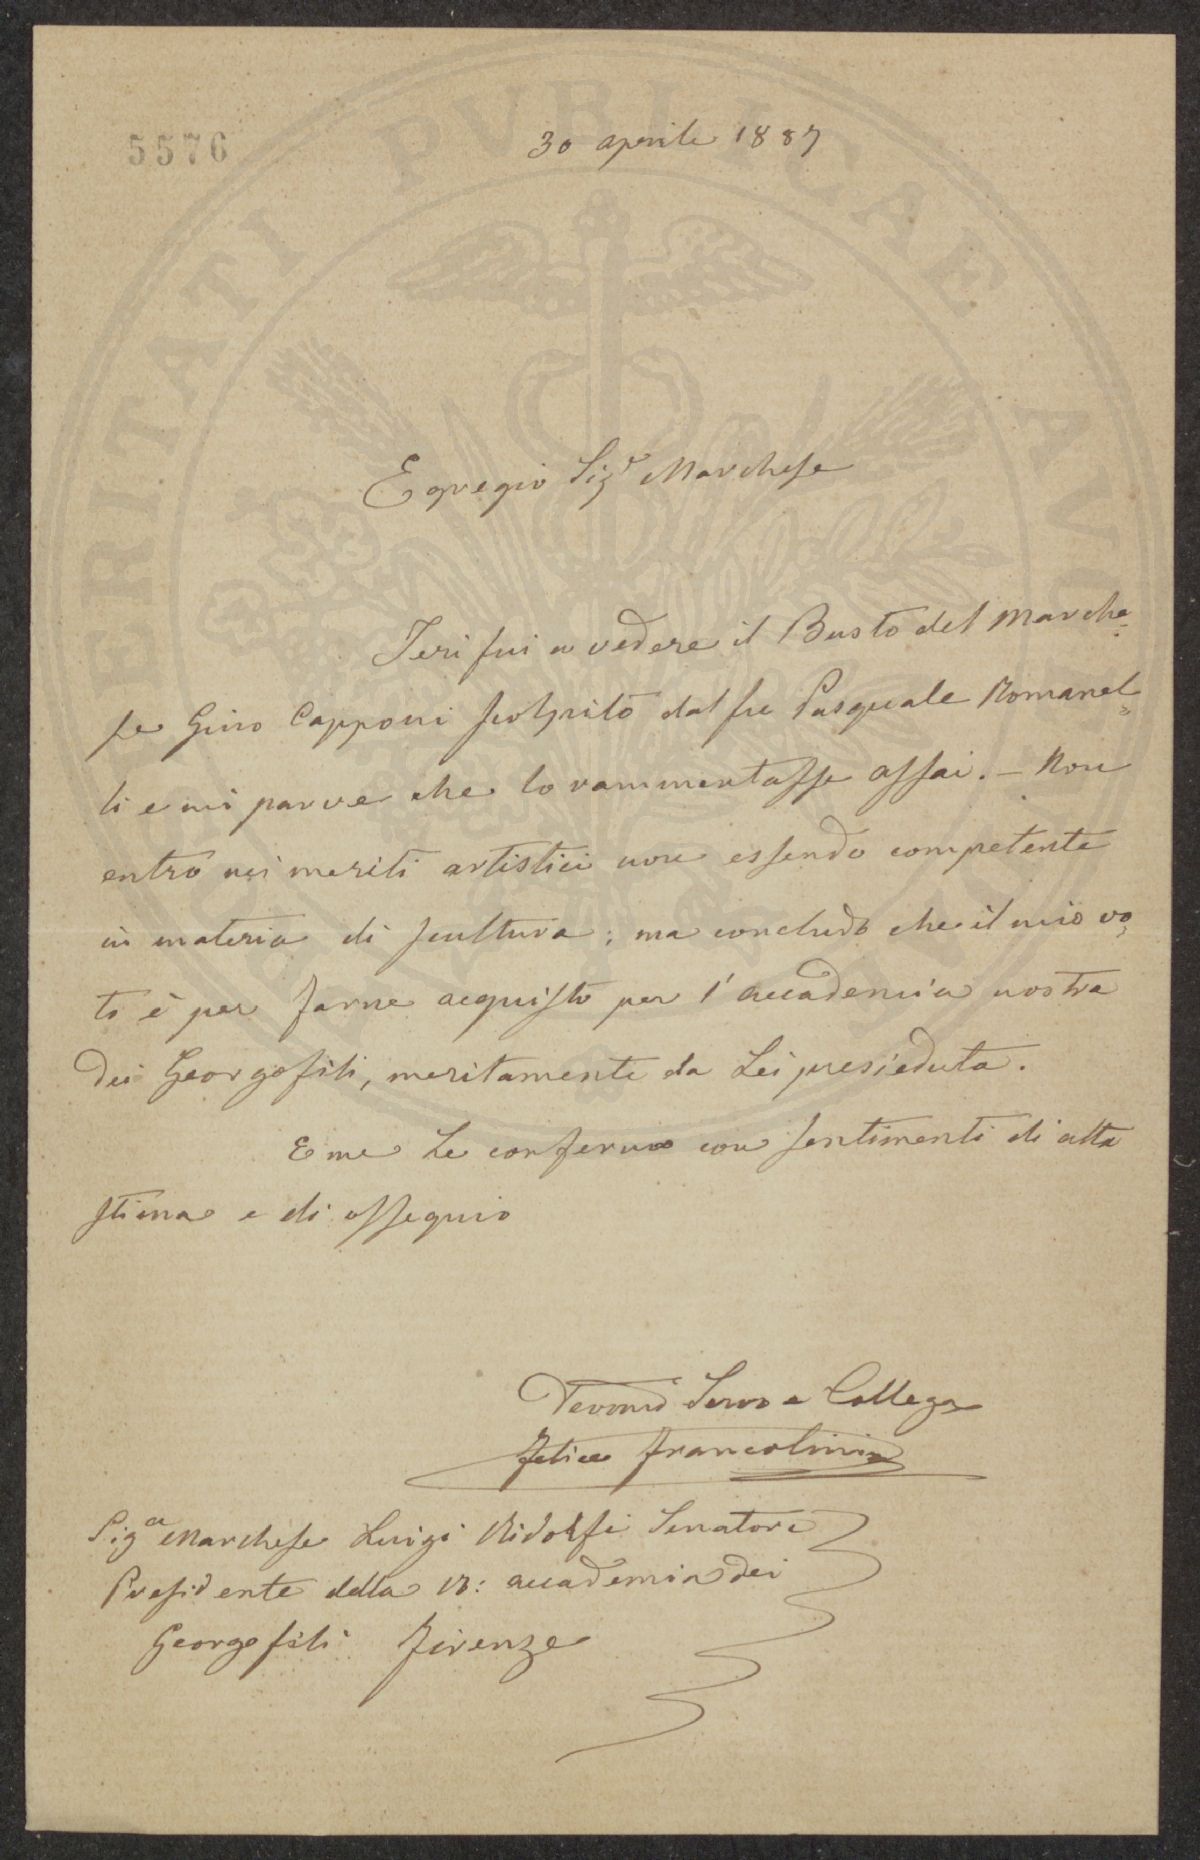 5576
30 aprile 1887
Egregio Sig.r Marchese
Ieri fui a vedere il Busto del Marche=
se Gino Capponi scolpito dal fu Pasquale Romanel=
li e mi parve che lo rammentasse assai. – Non
entro nei meriti artistici non essendo competente
in materia di scultura; ma concludo che il mio vo=
to è per farne acquisto per l'accademia nostra
dei Georgofili, meritamente da Lei presieduta.
E me Le confermo con sentimenti di alta
stima e di ossequio
Devmo Servo e Collega
Felice Francolini
Sig.r Marchese Luigi Ridolfi Senatore
Presidente della R: accademia dei
Georgofili Firenze
PROSPERITATI PVBLICAE AVGENDAE